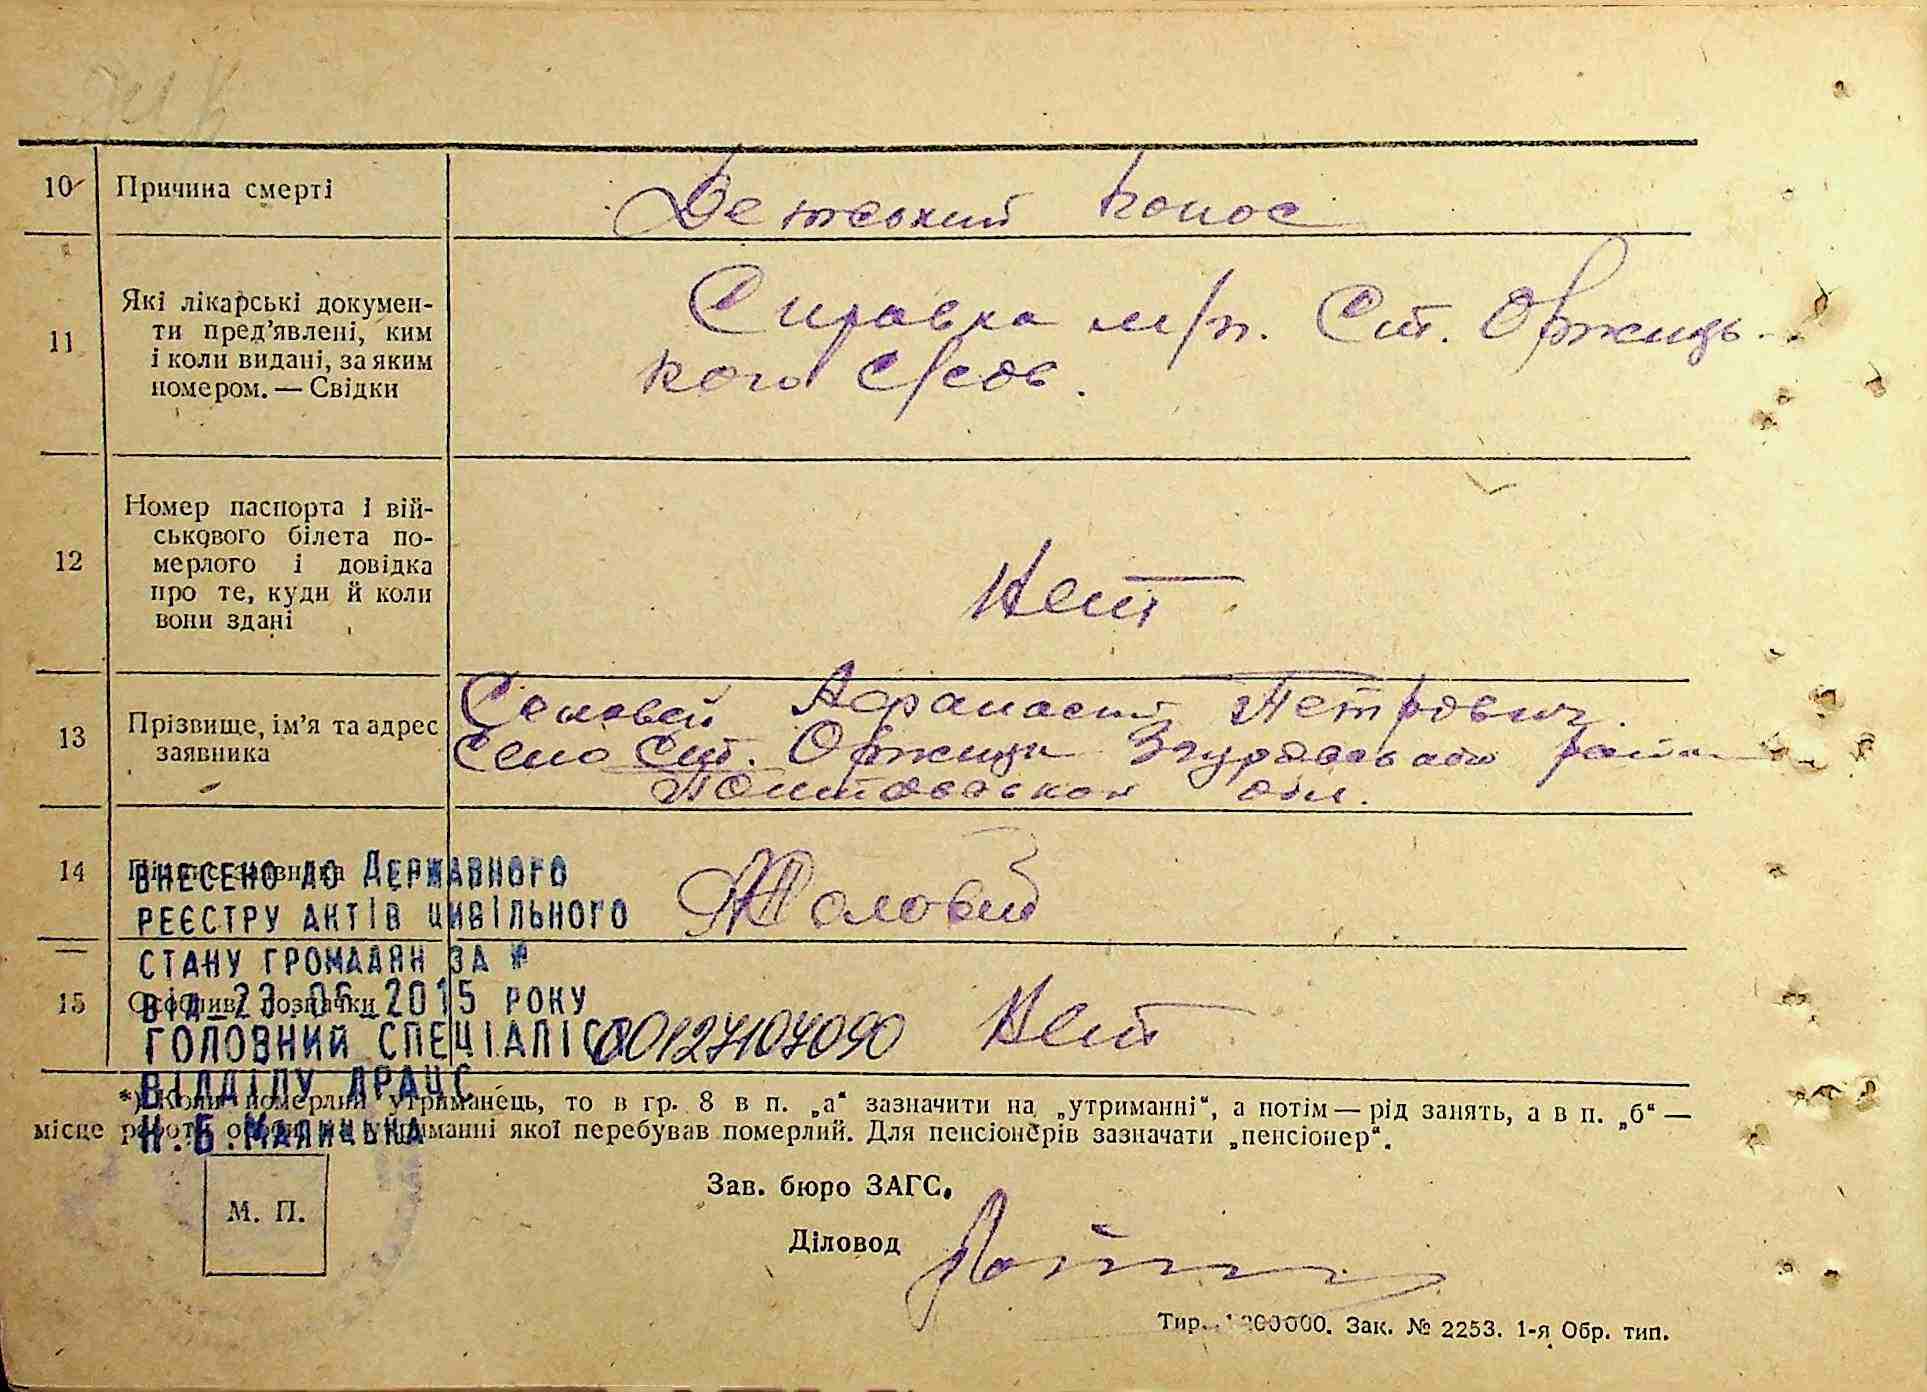 10 Причина смерті Детский понос
11 Які лікарські докумен-
ти пред’явлені, ким
і коли видані, за яким
номером. — Свідки
Справка м/п. Ст. Оржиць-
кого с/сов.
12 Номер паспорта і вій-
ськового білета по-
мерлого і довідка
про те, куди й коли
вони здані
Нет
13 Прізвище, ім’я та адрес
заявника
Соловей Афанасий Петрович.
Село Ст. Оржица Згуровского район
Полтавская обл.
14 Підпис заявника Соловей
ВНЕСЕНО ДО ДЕРЖАВНОГО
РЕЄСТРУ АКТІВ ЦИВІЛЬНОГО
СТАНУ ГРОМАДЯН ЗА №
ВІД 23.06.2015 РОКУ
ГОЛОВНИЙ СПЕЦІАЛІСТ
ВІДДІЛУ ДРАЦС
Н.Б.МАЛИЦЬКА
15 Особливі позначки 00127107090 Нет
*) Коли померлий утриманець, то в гр. 8 в п. „а“ зазначити на „утриманні“, а потім — рід занять, а в п. „б“ —
місце роботи особи, на утриманні якої перебував померлий. Для пенсіонерів зазначати „пенсіонер“.
М. П.
Зав. бюро ЗАГС.
Діловод
Тир. 1200000. Зак. № 2253. 1-я Обр. тип.